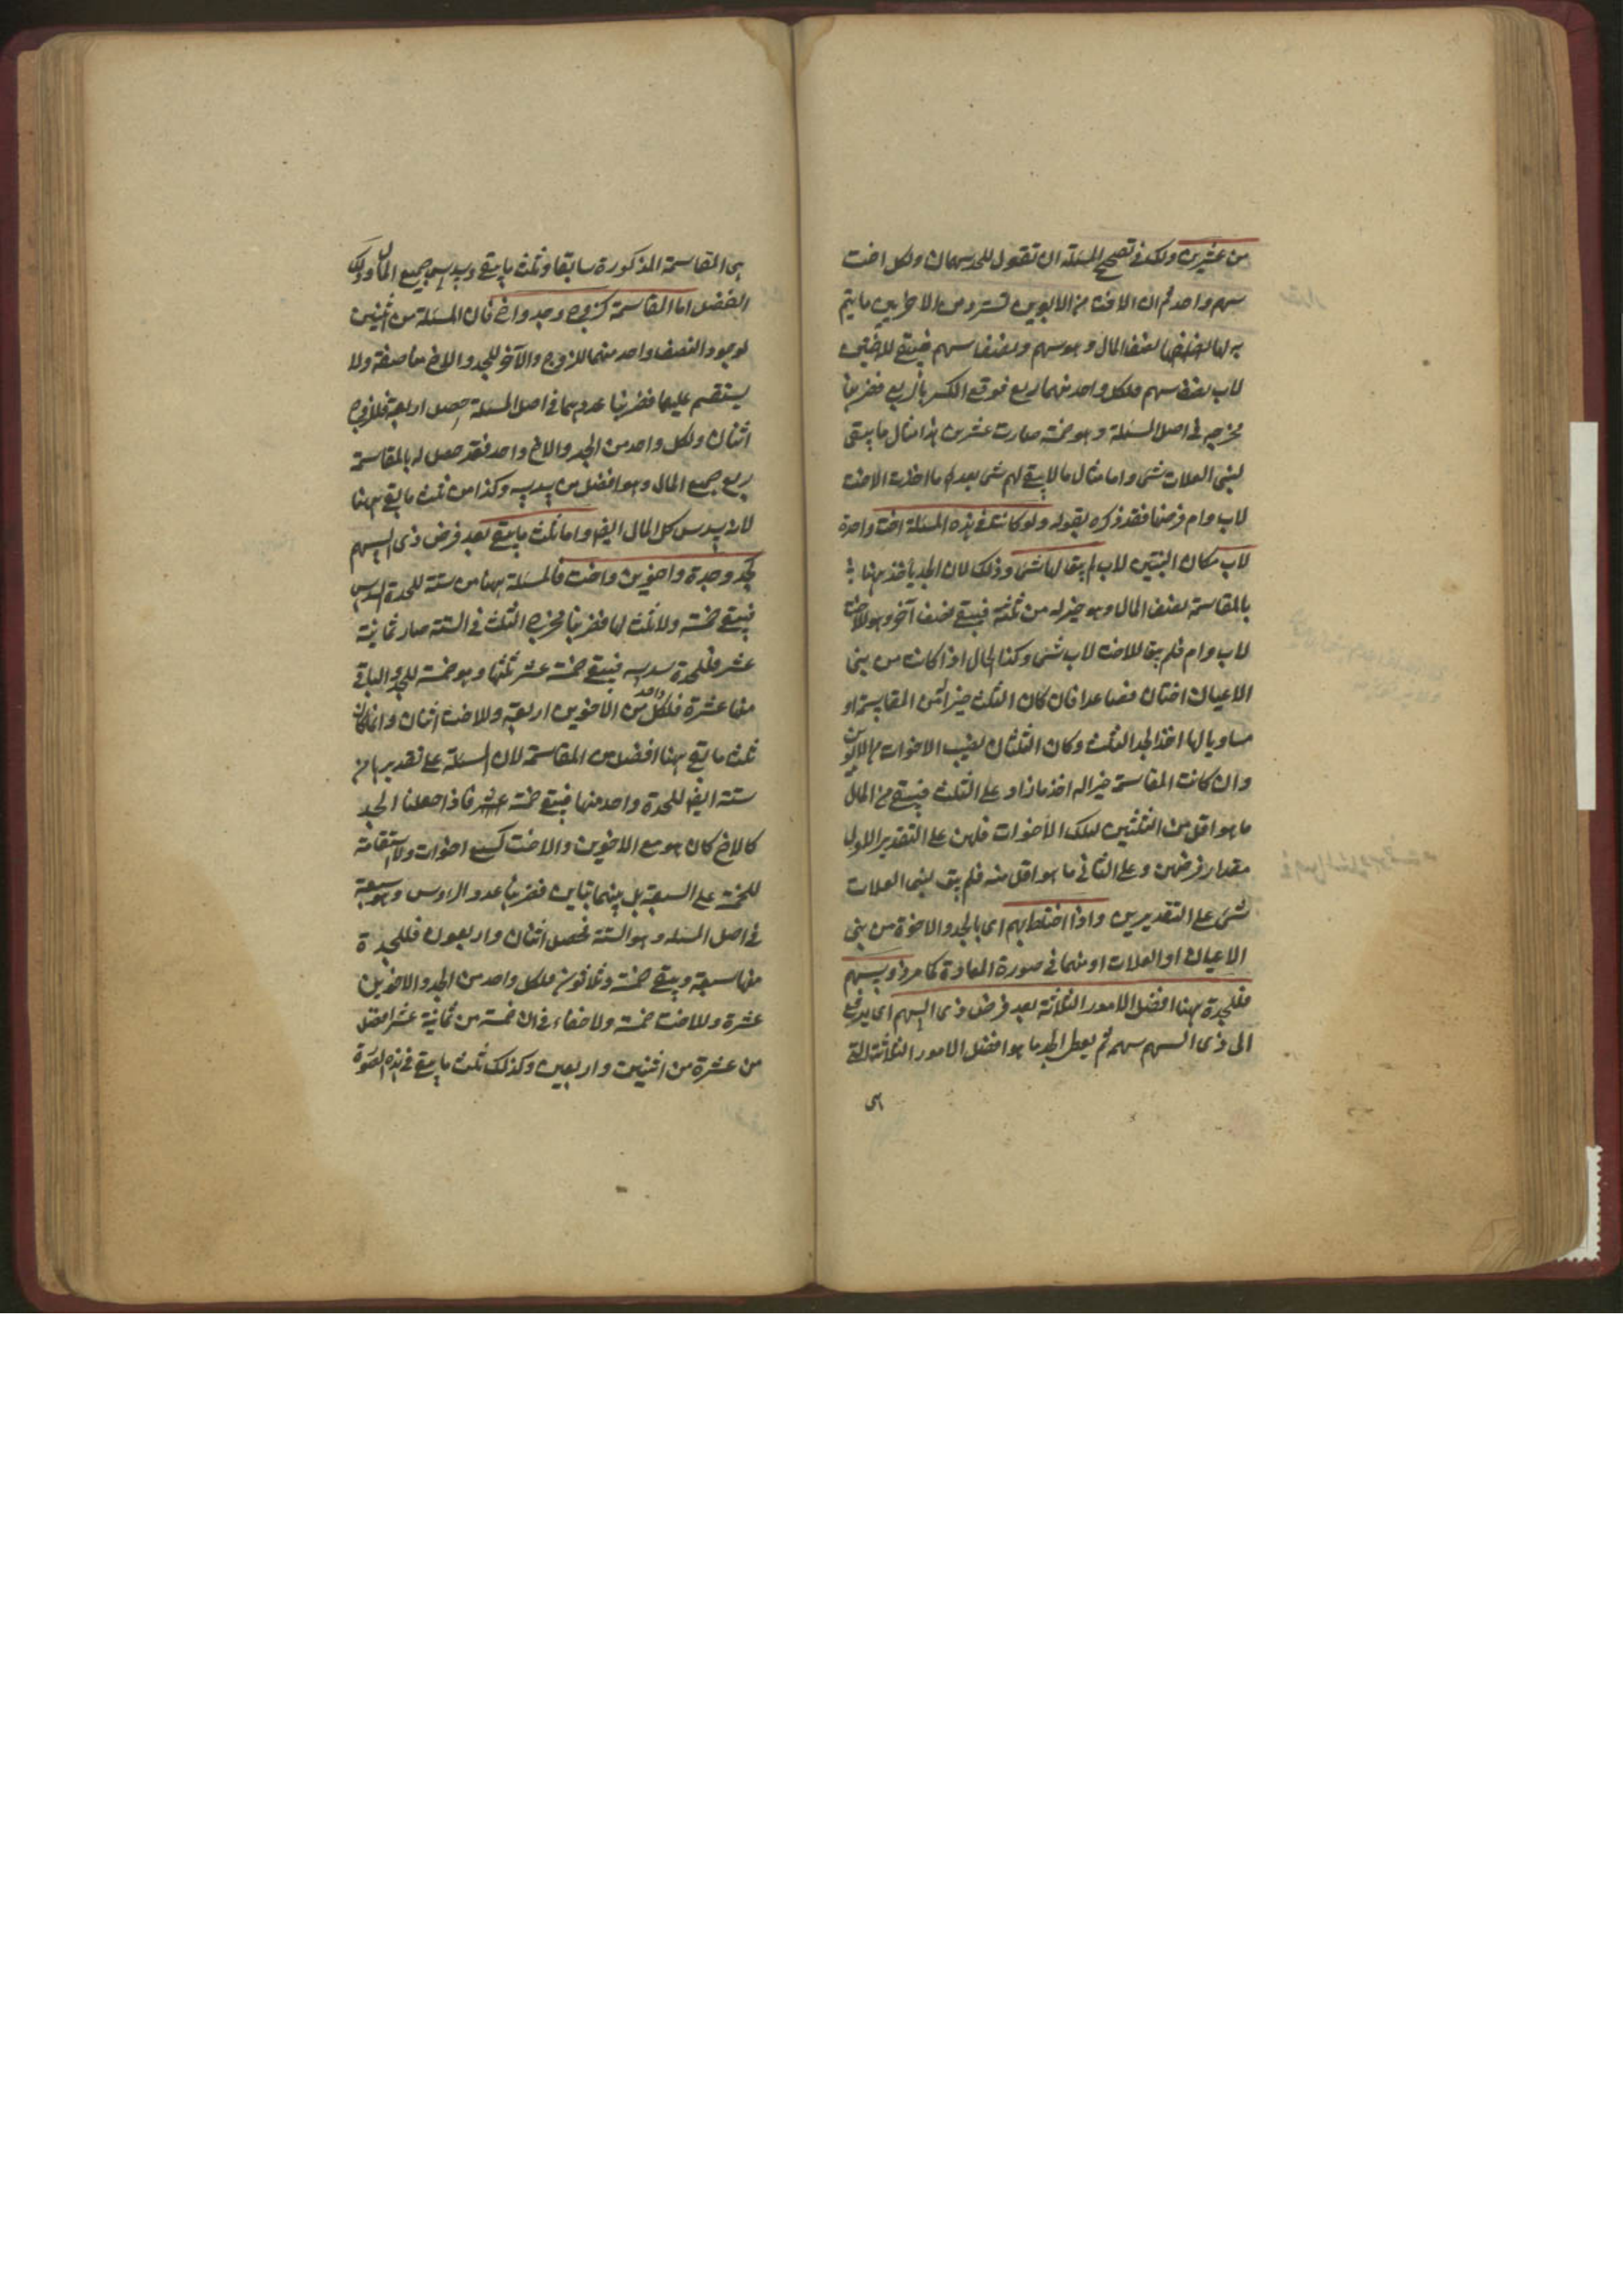 من عشرين ولك في تصحيح المسئلة ان تقول للجد سهمان ولكل اخت
سهم واحد ثم ان الاخت من الابوين تسترد من الاخريين ما يتم
به لها نصف المال وهو سهم ونصف سهم فيبقى للاختين
لاب نصف سهم ولكل واحد منهما ربع فوقع الكسر بالربع فضربنا
مخرجه في اصل المسئلة وهو خمسة صارت عشرين هذا مثال ما يبقى
لبنى العلات شئ واما مثال ما لا يبقى لهم شئ بعد ما اخذت الاخت
لاب وام فرضها فقد ذكره بقوله ولو كانت في هذه المسئلة اخت واحدة
لاب مكان اثنتين لاب لم يبق لها شئ وذلك لان الجد يأخذ ههنا
بالمقاسمة نصف المال وهو خير له من ثلثه فيبقى نصف آخر وهو للاخت
لاب وام فلم يبق للاخت لاب شئ وكذا الحال اذا كانت من بنى
الاعيان اختان فصاعدا فان كان الثلث خيرا من المقاسمة او
مساويا لها اخذ الجد الثلث وكان الثلثان نصيب الاخوات من الابوين
وان كانت المقاسمة خيرا له اخذ ما زاد على الثلث فيبقى من المال
ما هو اقل من الثلثين لتلك الاخوات فلهن على التقدير الاول
مقدار فرضهن وعلى الثانى ما هو اقل منه فلم يبق لبنى العلات
شئ على التقديرين واذا اختلط بهم اى بالجد والاخوة من بنى
الاعيان او العلات او منهما في صورة المعادة كما مر ذو سهم
فللجد ههنا افضل الامور الثلاثة بعد فرض ذى السهم اى يدفع
الى ذى السهم سهمه ثم يعطى الجد ما هو افضل الامور الثلاثة التى
هى
هى المقاسمة المذكورة سابقا وثلث ما يبقى وسدس جميع المال وذلك
الفضل اما المقاسمة كزوج وجد واخ فان المسئلة من اثنين
لوجود النصف واحد منهما للزوج والآخر للجد والاخ مناصفة ولا
يستقيم عليهما فضربنا عددهما في اصل المسئلة حصل اربعة فللزوج
اثنان ولكل واحد من الجد والاخ واحد فقد حصل له بالمقاسمة
ربع جميع المال وهو افضل من سدسه وكذا من ثلث ما بقى ههنا
لانه سدس كل المال ايضا واما ثلث ما يبقى بعد فرض ذى السهم
كجد وجدة واخوين واخت فالمسئلة ههنا من ستة للجدة السدس
فيبقى خمسة ولا ثلث لها فضربنا مخرج الثلث في الستة صار ثمانية
عشر فللجدة سدسه فيبقى خمسة عشر ثلثها وهو خمسة للجد والباقى
منها عشرة فلكل واحد من الاخوين اربعة وللاخت اثنان وانما كان
ثلث ما بقى ههنا افضل من المقاسمة لان المسئلة على تقديرها من
ستة ايضا للجدة واحد منها فيبقى خمسة فاذا جعلنا الجد
كالاخ كان هو مع الاخوين والاخت كسبع اخوات ولا استقامة
للخمسة على السبعة بل بينهما تباين فضربنا عدد الرؤس وهو سبعة
في اصل المسئلة وهو الستة فحصل اثنان واربعون فللجدة
منها سبعة ويبقى خمسة وثلاثون فلكل واحد من الجد والاخوين
عشرة وللاخت خمسة ولا خفاء في ان خمسة من ثمانية عشر افضل
من عشرة من اثنين واربعين وكذلك ثلث ما يبقى في هذه الصورة